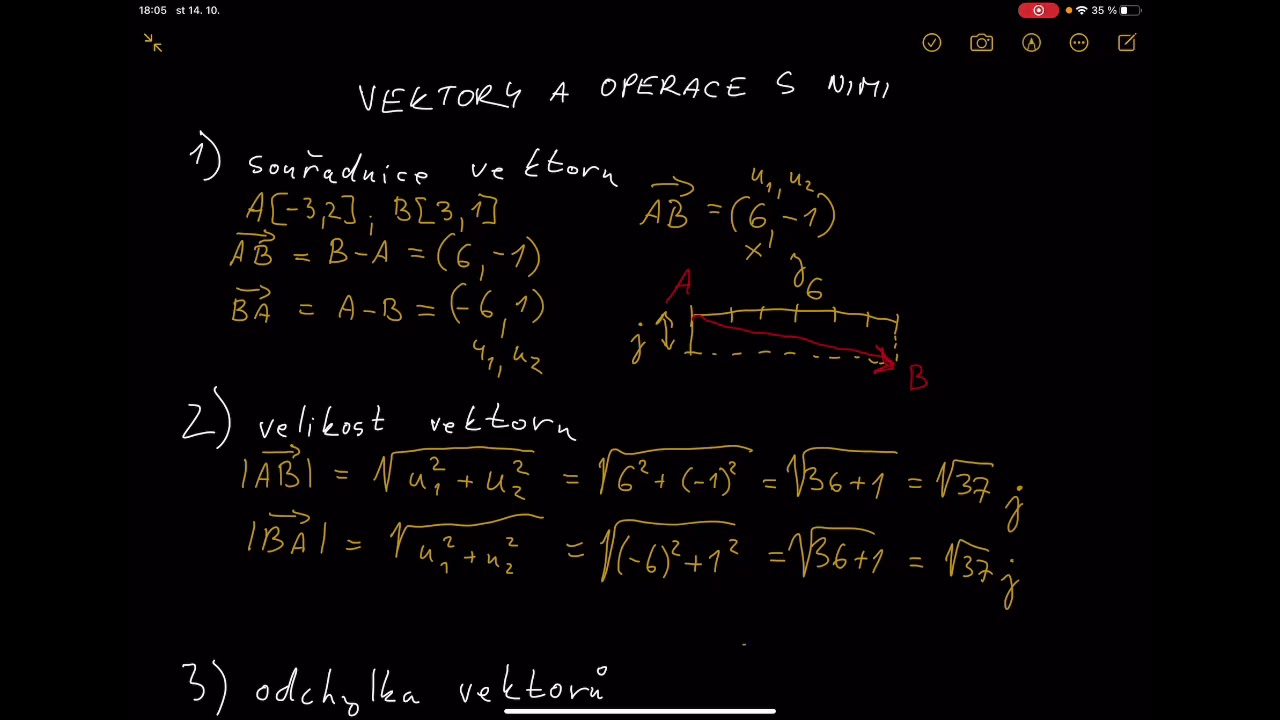 18:05 st 14. 10. 35 %
VEKTORY A OPERACE S NIMI
1) souřadnice vektoru
A[-3,2] ; B[3,1]
AB = B-A = (6,-1)
BA = A-B = (-6,1)
u₁, u₂
u₁, u₂
AB = (6,-1)
x, y
6
A
j
B
2) velikost vektoru
|AB| = √(u₁² + u₂²) = √(6² + (-1)²) = √(36+1) = √37 j
|BA| = √(u₁² + u₂²) = √((-6)² + 1²) = √(36+1) = √37 j
3) odchylka vektorů